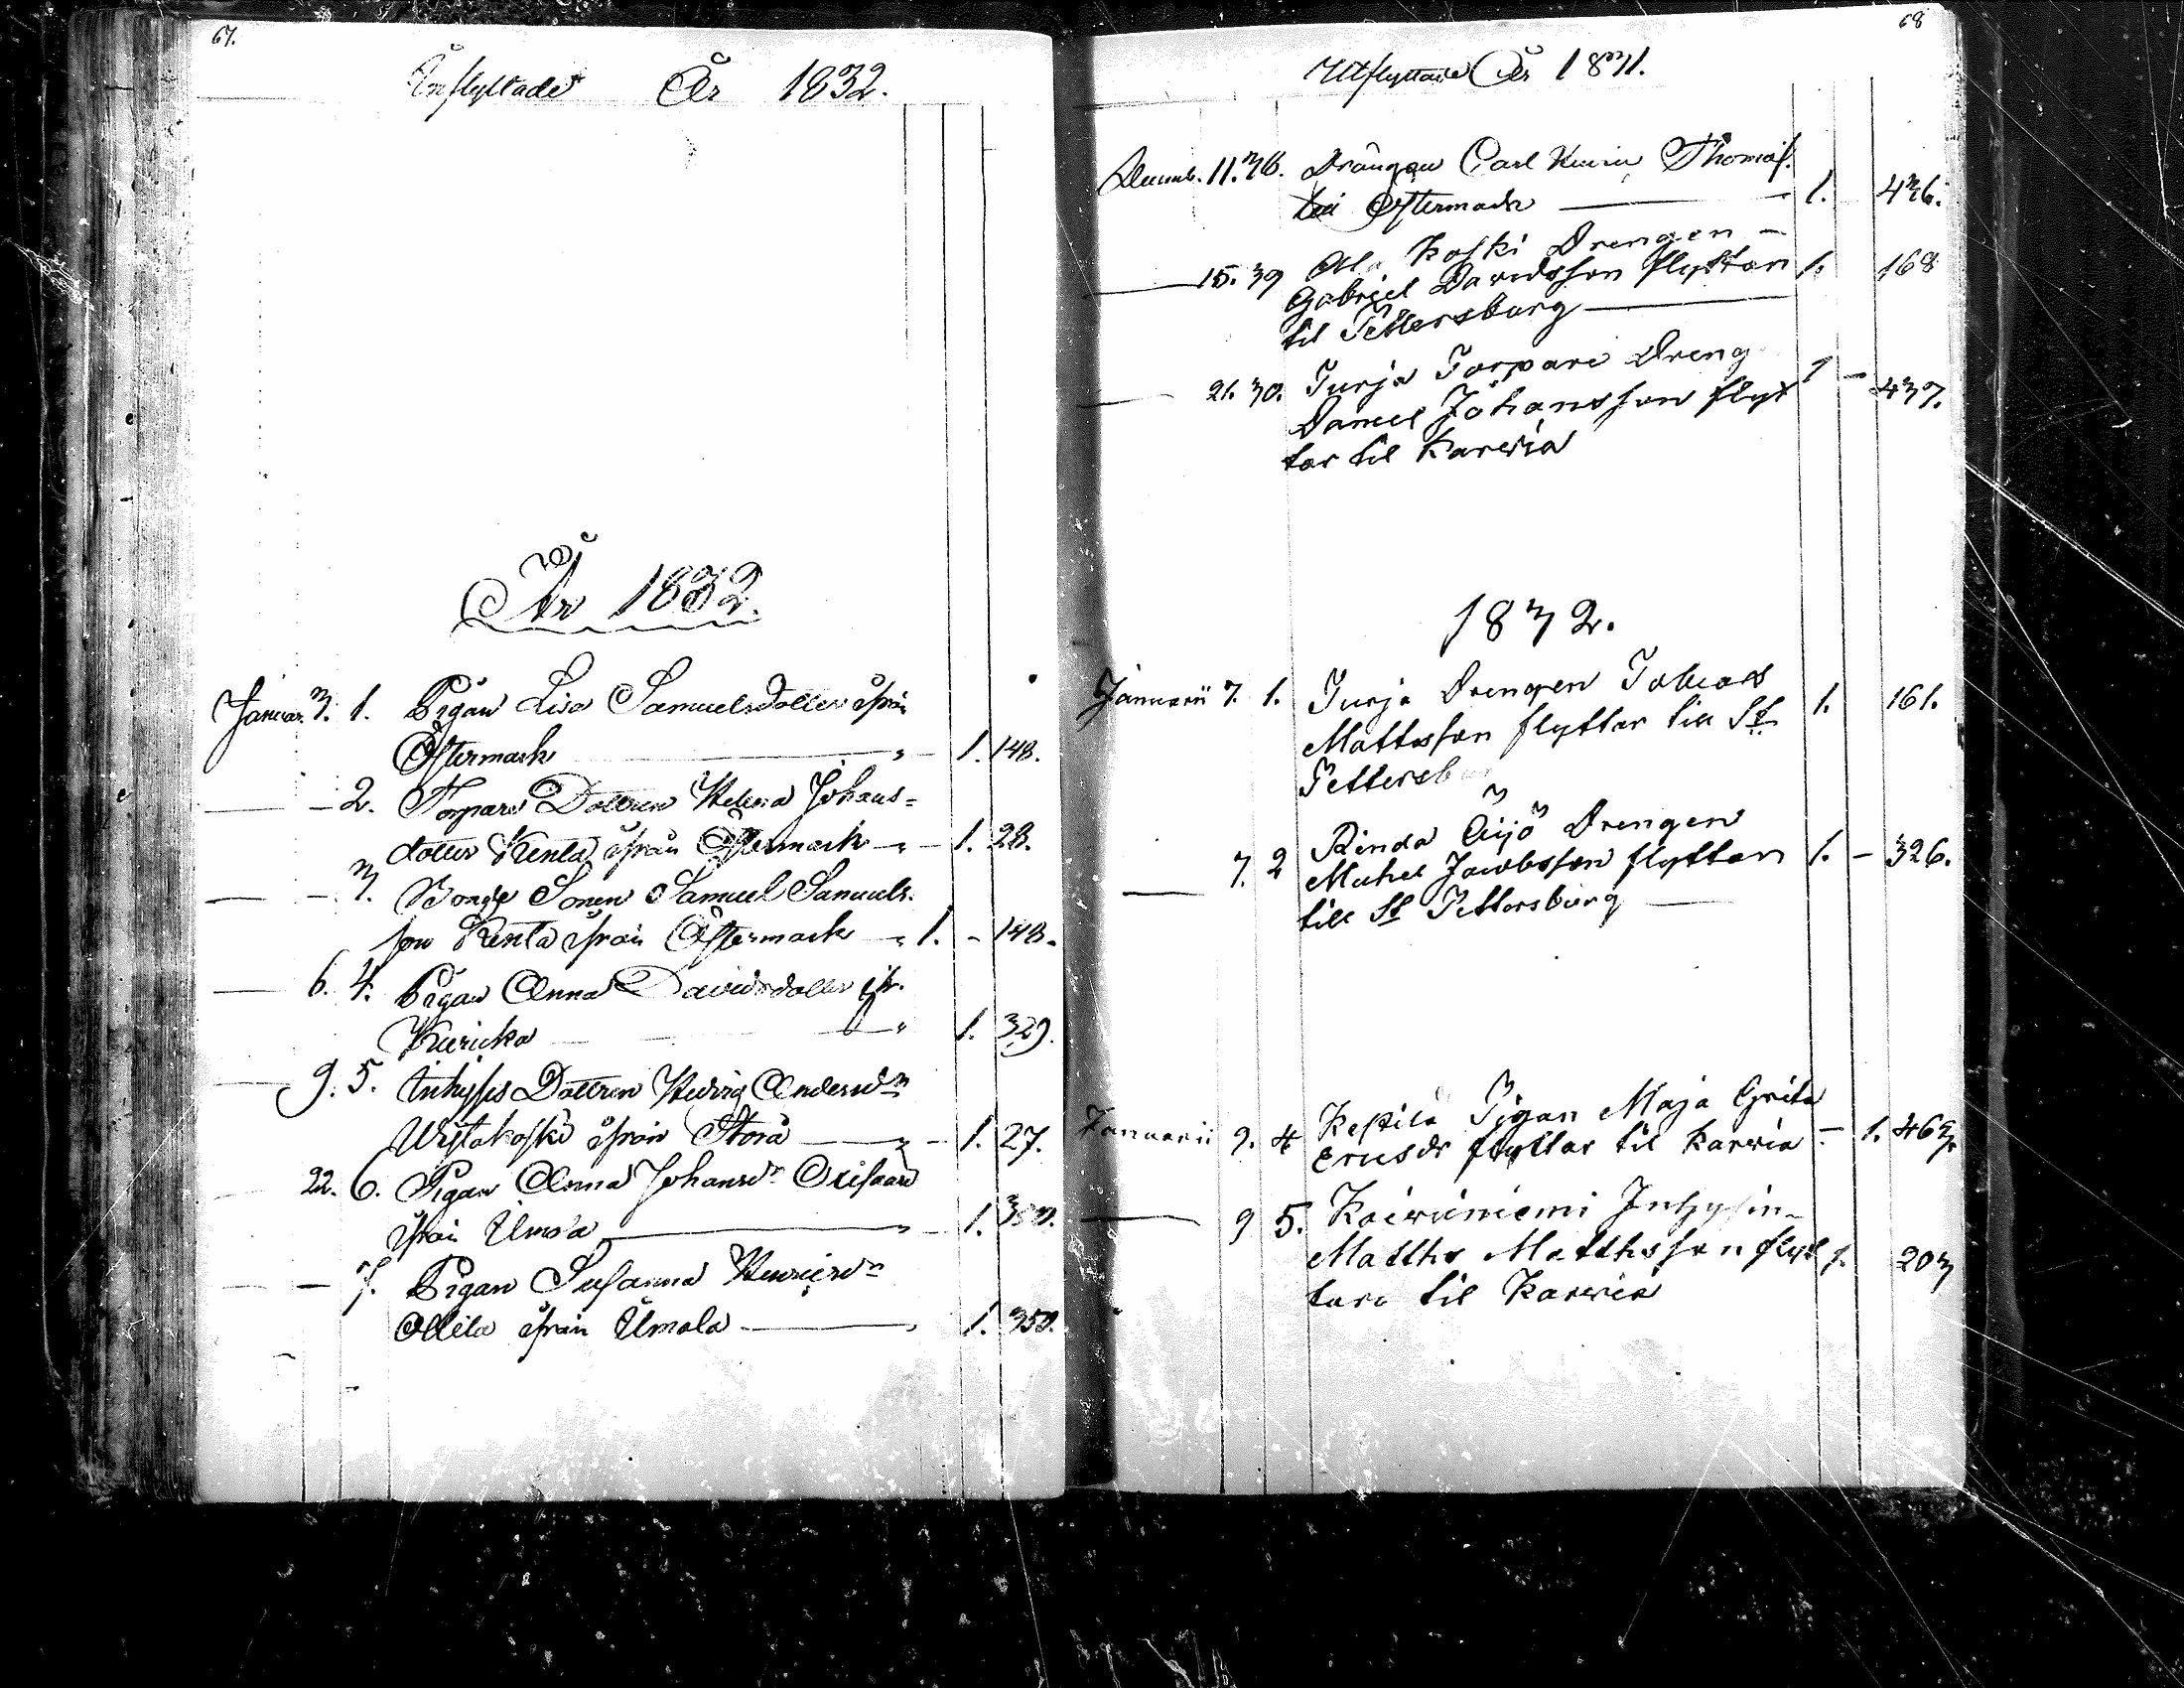 67.
Inflyttade År 1832.
År 1832.
Januar. 3. 1. Pigan Lisa Samuelsdotter ifrån
Östermark 1. 148.
2. Torpare Dottren Helena Johans=
dotter Kenta ifrån Östermark 1. 28.
3. Sonen Samuel Samuels.
son Kenta ifrån Östermark 1. - 148.
6. 4. Pigan Anna Davidsdotter fr.
Kuricka 1. 329.
9. 5. Inhyses Dottren Hedvig Andersdr
ifrån Storå 1. 27.
22. 6. Pigan Anna Johansdr
ifrån 1. 350.
7. Pigan Susanna Henricsdr
Ollila ifrån Ilmola 1. 350.
68
Utflyttade År 1831.
Decemb. 11. 36. Drängen Carl Thomass.
till Östermark 1. 436.
15. 39 Ala Koski Drengen
Gabriel Davidsson flyttar 1. 168
til Pettersburg
21. 30. Jurja Torpare Dreng
Daniel Johansson flyt 1 - 437.
tar til Karvia
1832.
Januarii 7. 1. Jurja Drengen Tobias
Mattsson flyttar till St 1. 161.
Pettersbur
7. 2 Äijö Drengen
Michel Jacobsson flyttar 1. - 326.
till St Pettersburg
Januarii 9. 4 Keskila Pigan Maja Greta
Ericsdr flyttar til Karvia - 1. 462.
9 5. Koivuniemi Inhysin-
Matths Matthsson flyt 1. 203
tar til Karvia